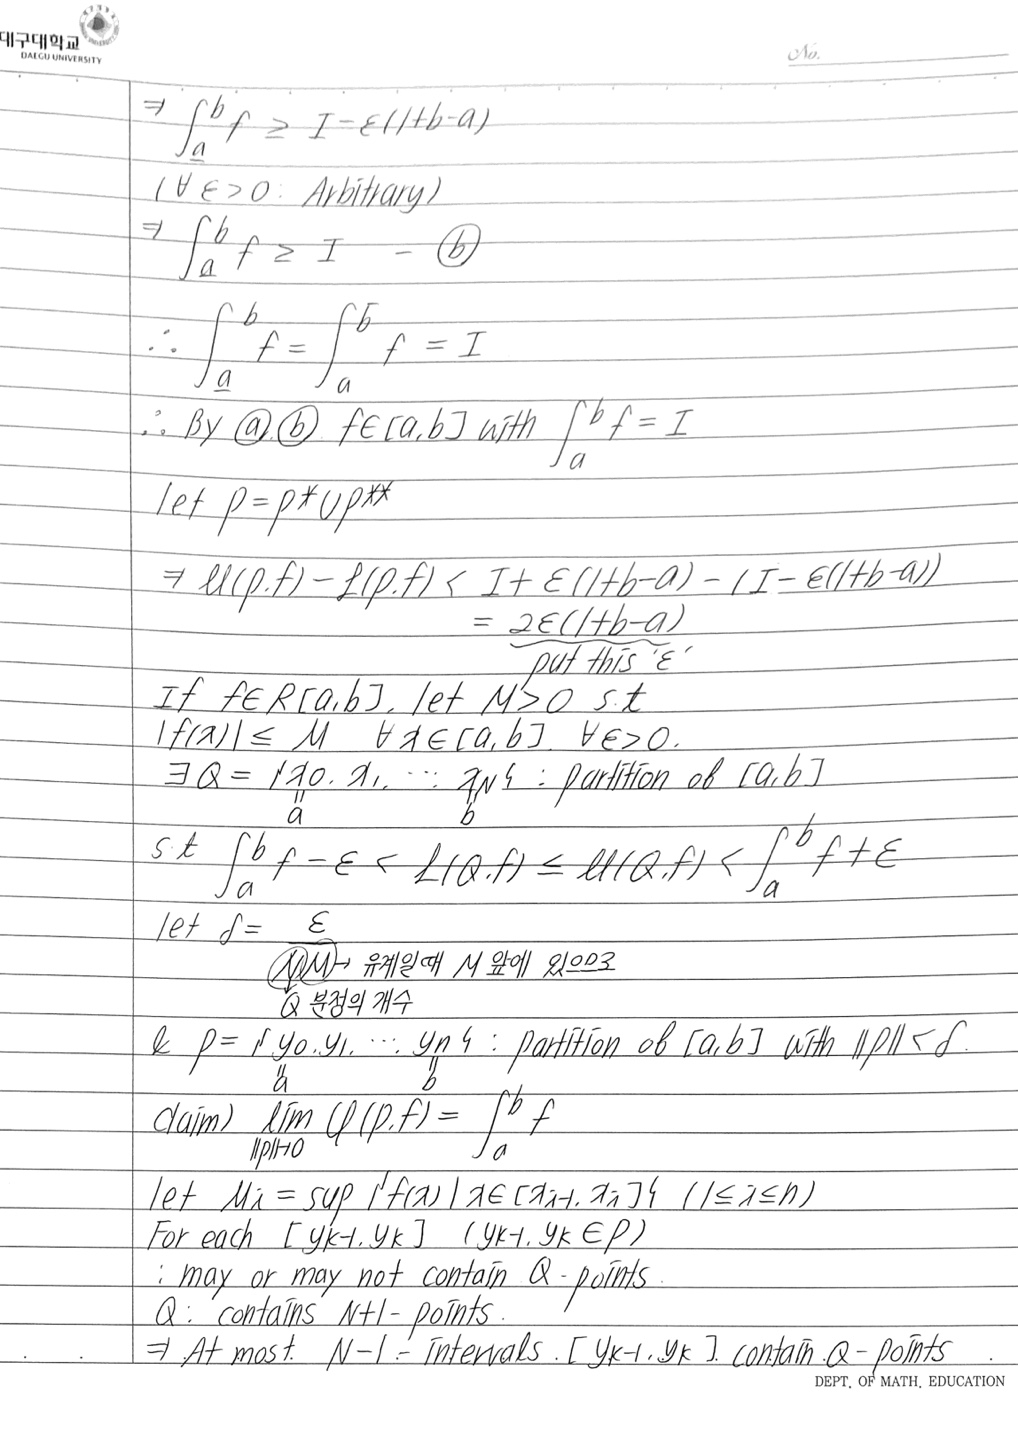 대구대학교
DAEGU UNIVERSITY
No.
⇒ ∫_a^b f ≥ I-ε(1+b-a)
(∀ε>0: Arbitrary)
⇒ ∫_a^b f ≥ I - ⓑ
∴ ∫_a^b f = ∫_a^b f = I
∴ By ⓐ,ⓑ f∈[a,b] with ∫_a^b f = I
let p=p*∪p**
⇒ U(p.f)-L(p.f) < I+ε(1+b-a)-(I-ε(1+b-a))
= 2ε(1+b-a)
put this 'ε'
If f∈R[a,b]. let M>0 s.t
|f(x)| ≤ M ∀x∈[a,b] ∀ε>0.
∃Q={x0. x1. ⋯ xN} : partition of [a,b]
= a = b
s.t ∫_a^b f-ε < L(Q.f) ≤ U(Q.f) < ∫_a^b f+ε
let δ= ε
NM → 유계일때 M 앞에 있으므로
Q 분점의 개수
& p={y0.y1. ⋯ yn} : partition of [a,b] with ||p||<δ.
= a = b
Claim) lim_{||p||→0} φ(p.f) = ∫_a^b f
let Mi = sup{f(x)|x∈[xi-1, xi]} (1≤i≤n)
For each [yk-1, yk] (yk-1, yk∈p)
: may or may not contain Q-points.
Q: contains N+1-points.
⇒ At most N-1- intervals. [yk-1, yk]. contain Q-points
DEPT. OF MATH. EDUCATION